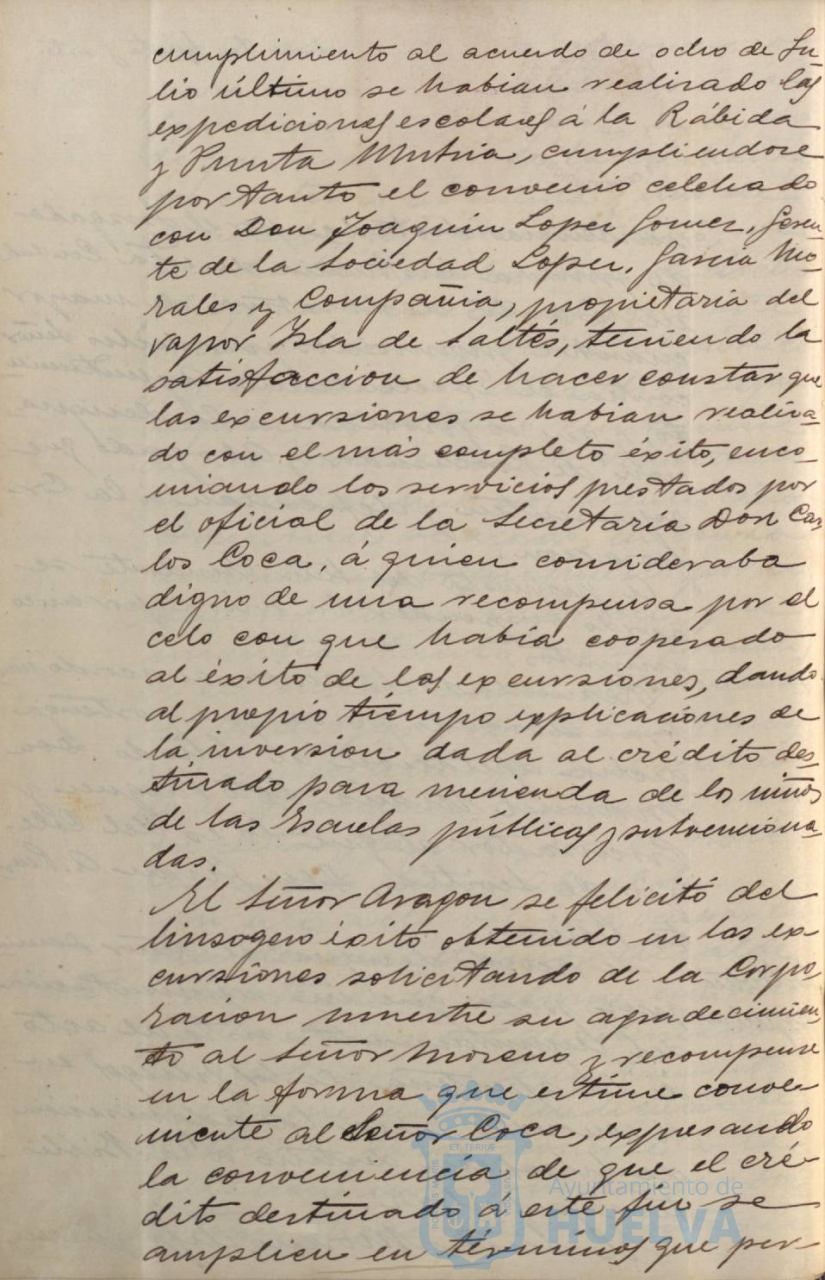 cumplimiento al acuerdo de ocho de Ju-
lio último se habian realizado las
expediciones escolares á la Rábida
y Punta Umbria, cumpliendose
por tanto el convenio celebrado
con Don Joaquin Lopez Gomez, Geren-
te de la Sociedad Lopez, Garcia Mo-
rales y Compañia, propietaria del
vapor Isla de Saltés, teniendo la
satisfaccion de hacer constar que
las excursiones se habian realiza-
do con el más completo éxito, enco-
miando los servicios prestados por
el oficial de la Secretaria Don Car-
los Coca, á quien consideraba
digno de una recompensa por el
celo con que había cooperado
al éxito de las excursiones, dando
al propio tiempo explicaciones de
la inversion dada al crédito des-
tinado para merienda de los niños
de las Escuelas públicas y subvenciona-
das.
El Señor Aragon se felicitó del
linsogero éxito obtenido en las ex-
cursiones solicitando de la Corpo-
racion muestre su agradecimien-
to al Señor Moreno y recompense
en la forma que estime conve-
niente al Señor Coca, expresando
la conveniencia de que el cré-
dito destinado á este fin se
amplien en términos que per-
Ayuntamiento de
HUELVA